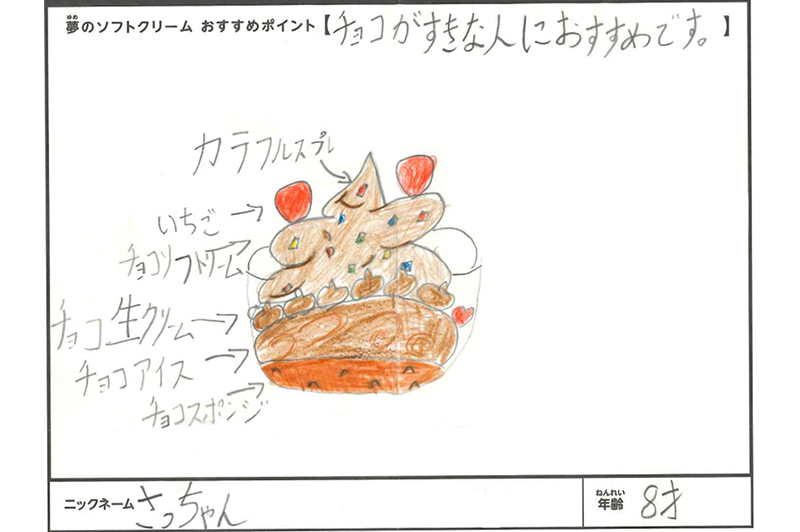 夢のソフトクリーム おすすめポイント【チョコがすきな人におすすめです。】
ゆめ
カラフルスプレ
いちご
チョコソフトクリーム
チョコ生クリーム
チョコアイス
チョコスポンジ
ニックネーム さっちゃん
ねんれい
年齢 8才